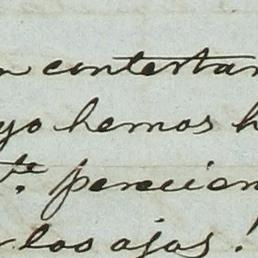 n contestar
yo hemos h
te. perecien
los ojos!